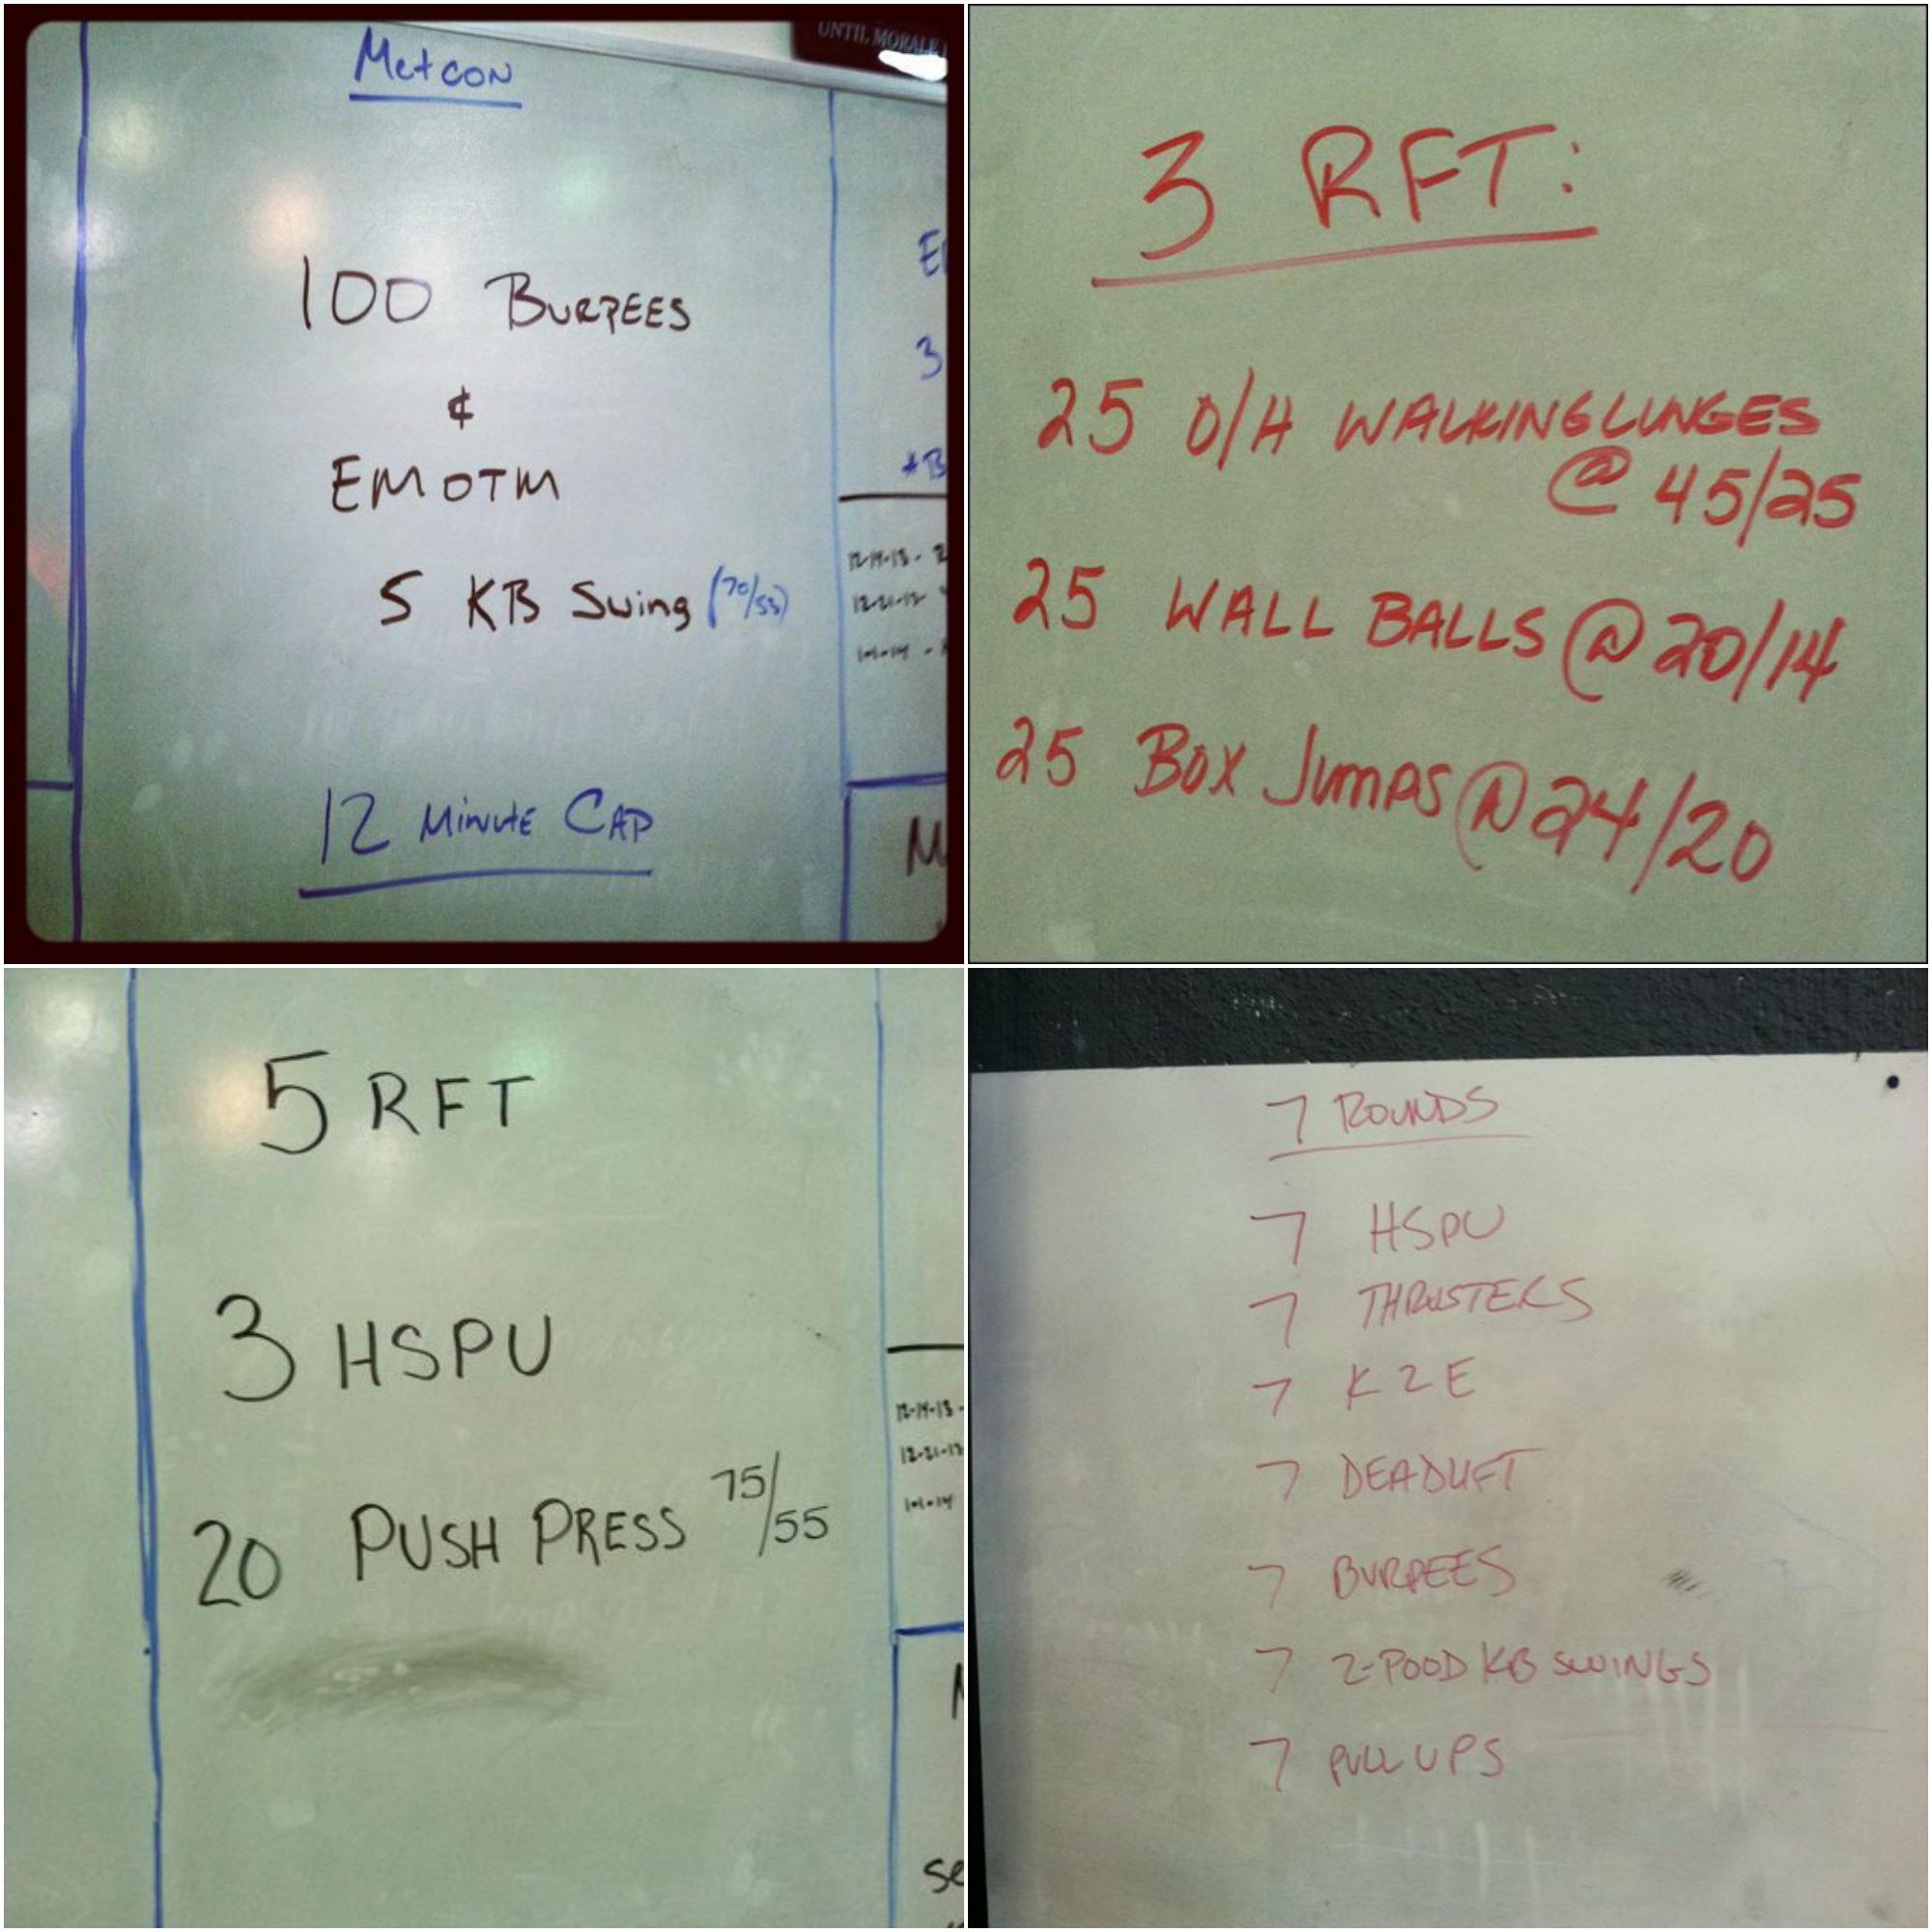 UNTIL MORALE
Metcon
100 BURPEES
&
EMOTM
5 KB Swing (70/53)
12 Minute CAP
12-14-13 -
12-21-13
1-1-14 -
3 RFT:
25 O/H WALKING LUNGES
@ 45/25
25 WALL BALLS @ 20/14
25 BOX JUMPS @ 24/20
5 RFT
3 HSPU
20 PUSH PRESS 75/55
12-14-13 -
12-21-13
1-1-14
7 ROUNDS
7 HSPU
7 THRUSTERS
7 K2E
7 DEADLIFT
7 BURPEES
7 2-POOD KB SWINGS
7 PULL UPS